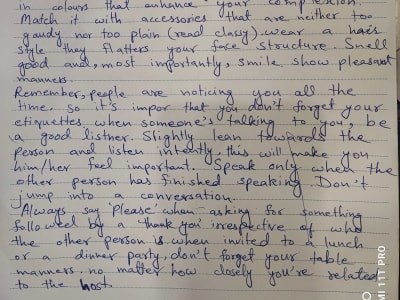 in colours that enhance your complexion.
Match it with accessories that are neither too
gaudy nor too plain (read classy). wear a hair
style they flatters your face structure. Smell
good and, most importantly, smile. show pleasant
manners.
Remember, people are noticing you all the
time. so it's impor that you don't forget your
etiquettes. when someone's talking to you, be
a good listner. Slightly lean towards the
person and listen intently, this will make you
him/her feel important. Speak only when the
other person has finished speaking. Don't
jump into a conversation.
Always say 'please' when asking for something
followed by a 'thank you' irrespective of who
the other person is. when invited to a lunch
or a dinner party, don't forget your table
manners. no matter how closely you're related
to the host.
MI 11T PRO